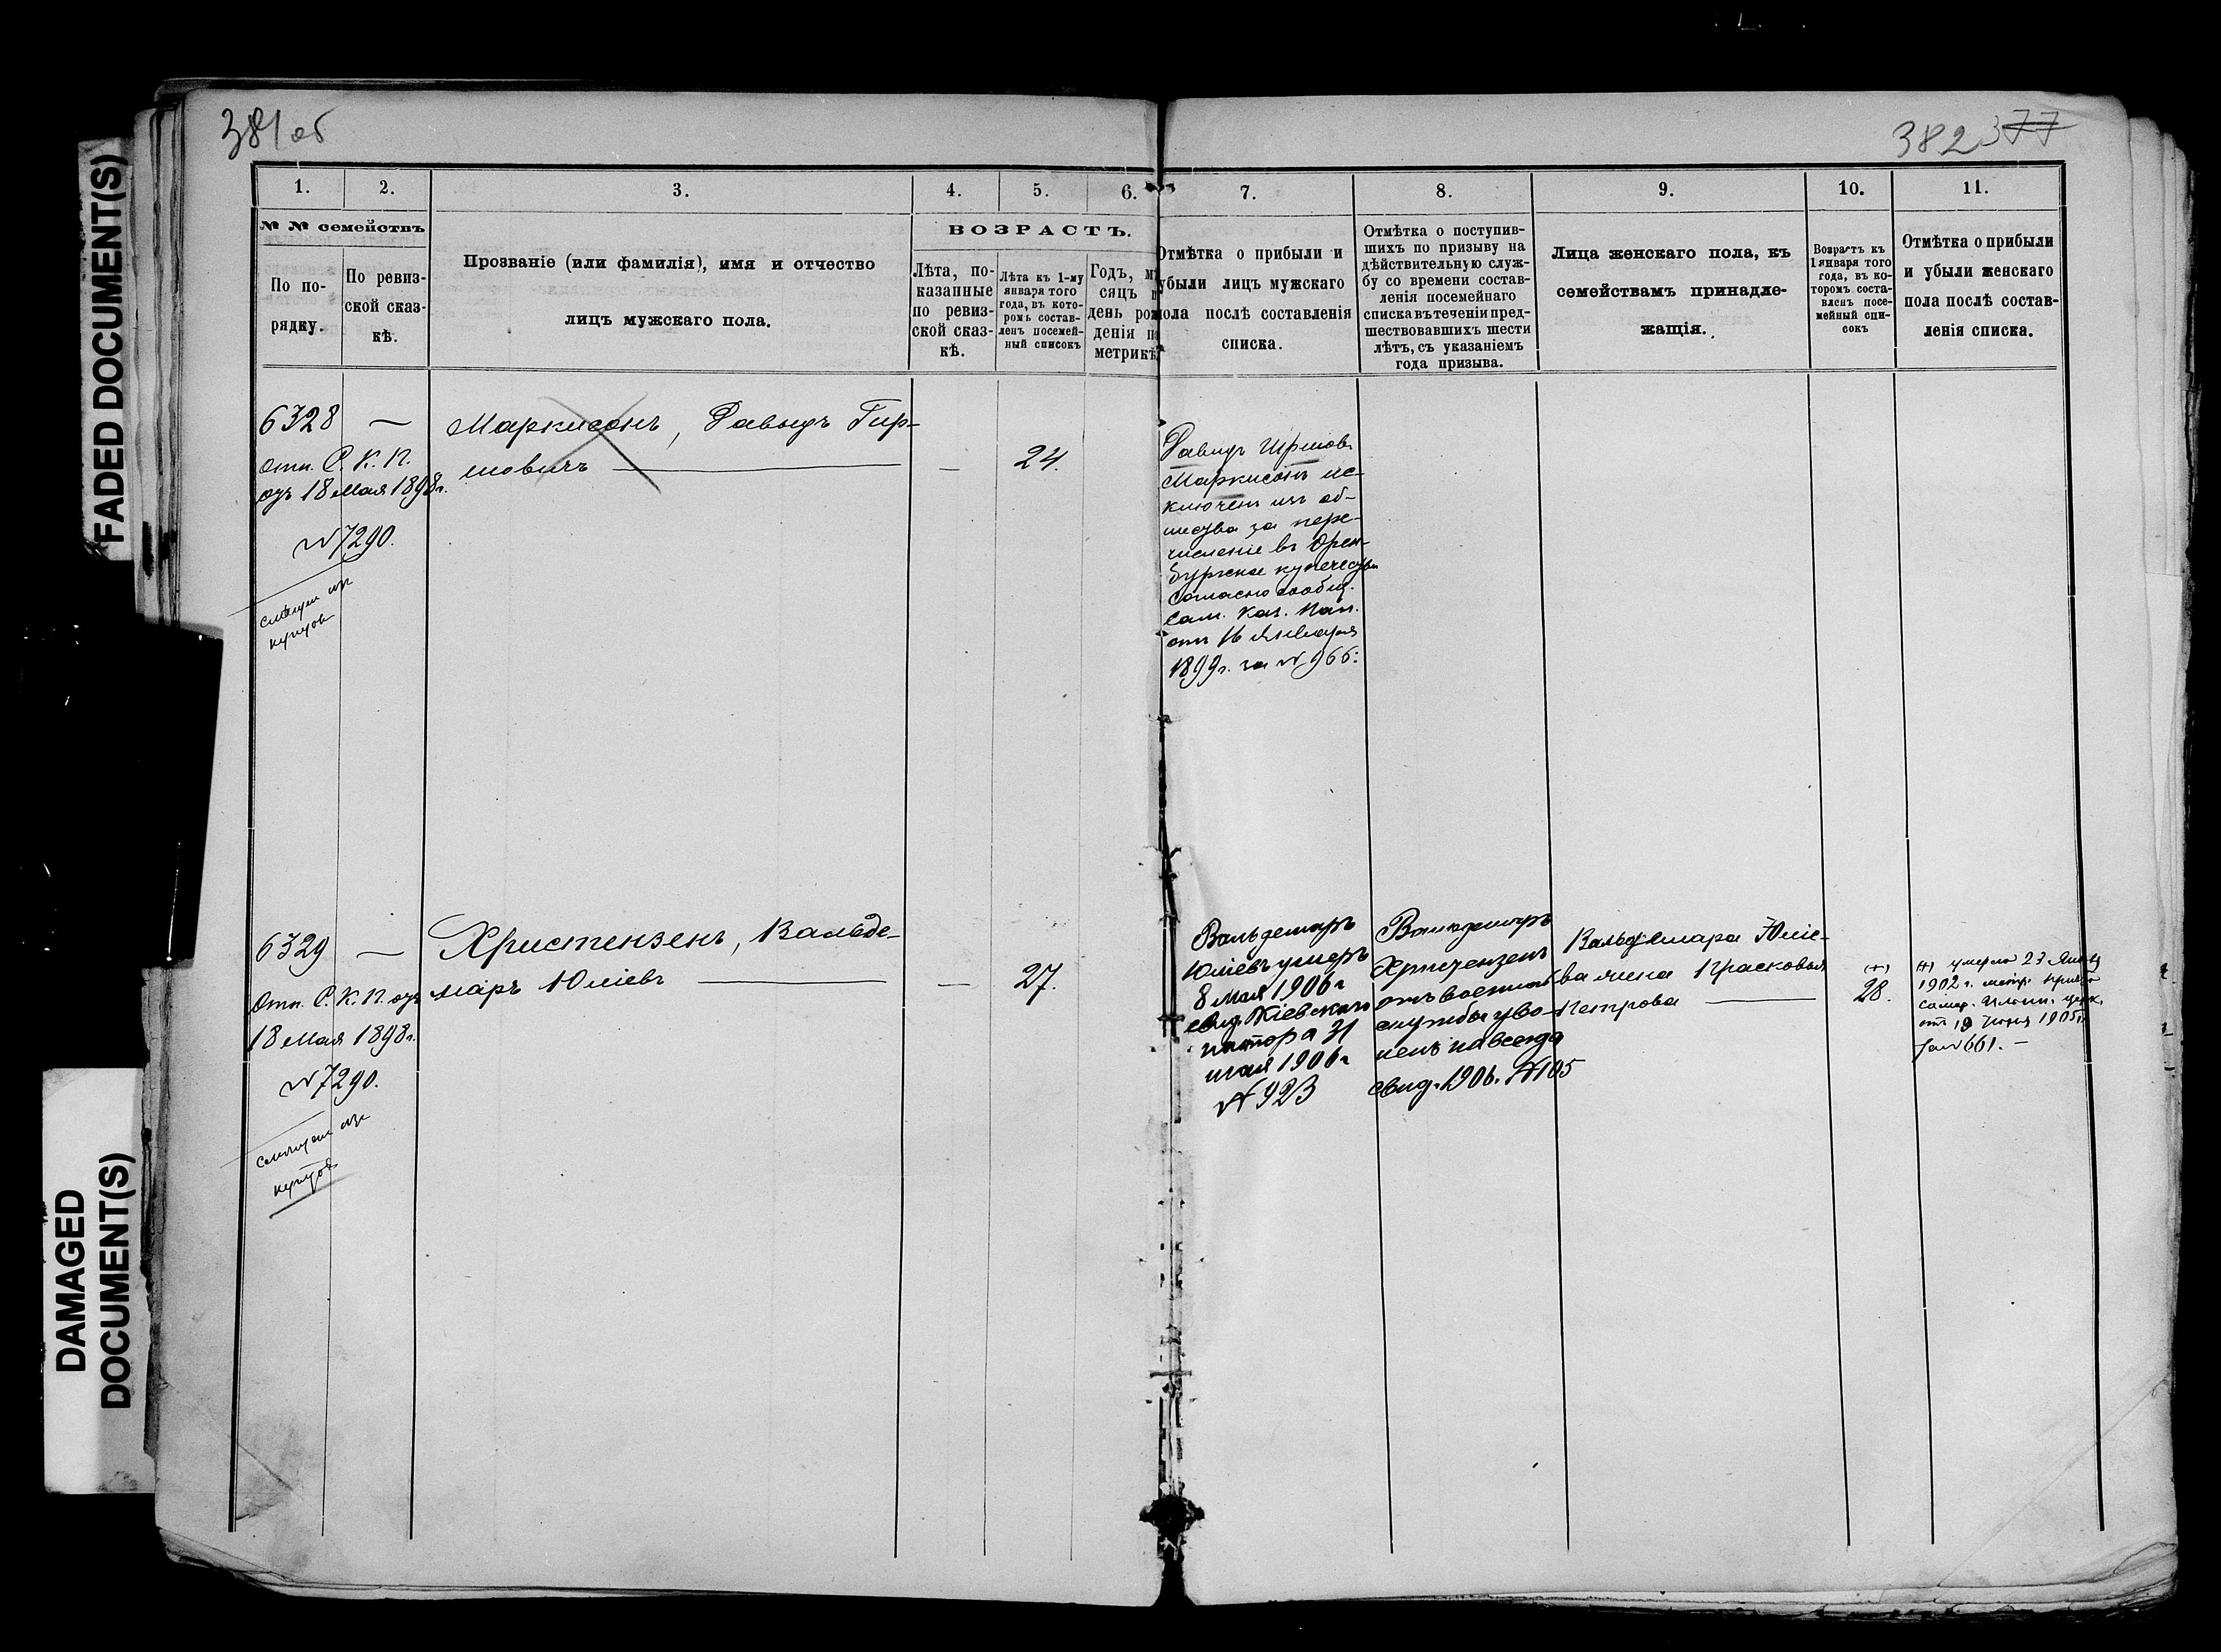 381об
382 377
FADED DOCUMENT(S)
DAMAGED
DOCUMENT(S)
1.
2.
3.
4.
5.
6.
7.
8.
9.
10.
11.
№ № семействъ
По по-
рядку.
По ревиз-
ской сказ-
кѣ.
Прозваніе (или фамилія), имя и отчество
лицъ мужскаго пола.
ВОЗРАСТЪ.
Лѣта, по-
казанные
по ревиз-
ской сказ-
кѣ.
Лѣта къ 1-му
января того
года, въ кото-
ромъ состав-
ленъ посемей-
ный списокъ
Годъ, м
сяцъ
день ро
денія п
метрикѣ
Отмѣтка о прибыли и
убыли лицъ мужскаго
пола послѣ составленія
списка.
Отмѣтка о поступив-
шихъ по призыву на
дѣйствительную служ-
бу со времени состав-
ленія посемейнаго
списка въ теченіи пред-
шествовавшихъ шести
лѣтъ, съ указаніемъ
года призыва.
Лица женскаго пола, къ
семействамъ принадле-
жащія.
Возрастъ къ
1 января того
года, въ ко-
торомъ соста-
вленъ посе-
мейный спи-
сокъ
Отмѣтка о прибыли
и убыли женскаго
пола послѣ состав-
ленія списка.
6328 —
Отн. С. К. П.
отъ 18 Мая 1898г.
№ 7290.
купцов
Маркисонъ, Давыдъ Гир-
шовичъ — — 24.
Давидъ Гиршов.
Маркисонъ ис-
ключен изъ об-
щества за пере-
численіе въ Орен-
бургское купечество
согласно сообщ.
Сам. Каз. Пал.
отъ 16 Января
1899г. за № 966.
6329 —
Отн. С. К. П. отъ
18 Мая 1898г.
№ 7290.
купцов
Христензенъ, Вальде-
маръ Юліевъ — — 27.
Вальдемаръ
Юліевъ умеръ
8 Мая 1906г
свид. Кіевскаго
пастора 31
мая 1906г
№ 923
Вальдемаръ
Христензенъ
отъ военной
службы уво-
ленъ навсегда
свид. 1906. №105
Вальдемара Юліе-
ва жена Прасковья
Петрова —
(+)
28.
(+) умерла 23 Янв
1902 г. метр.
Самар. Ильин. церк.
отъ 19 1905г.
за № 661. —